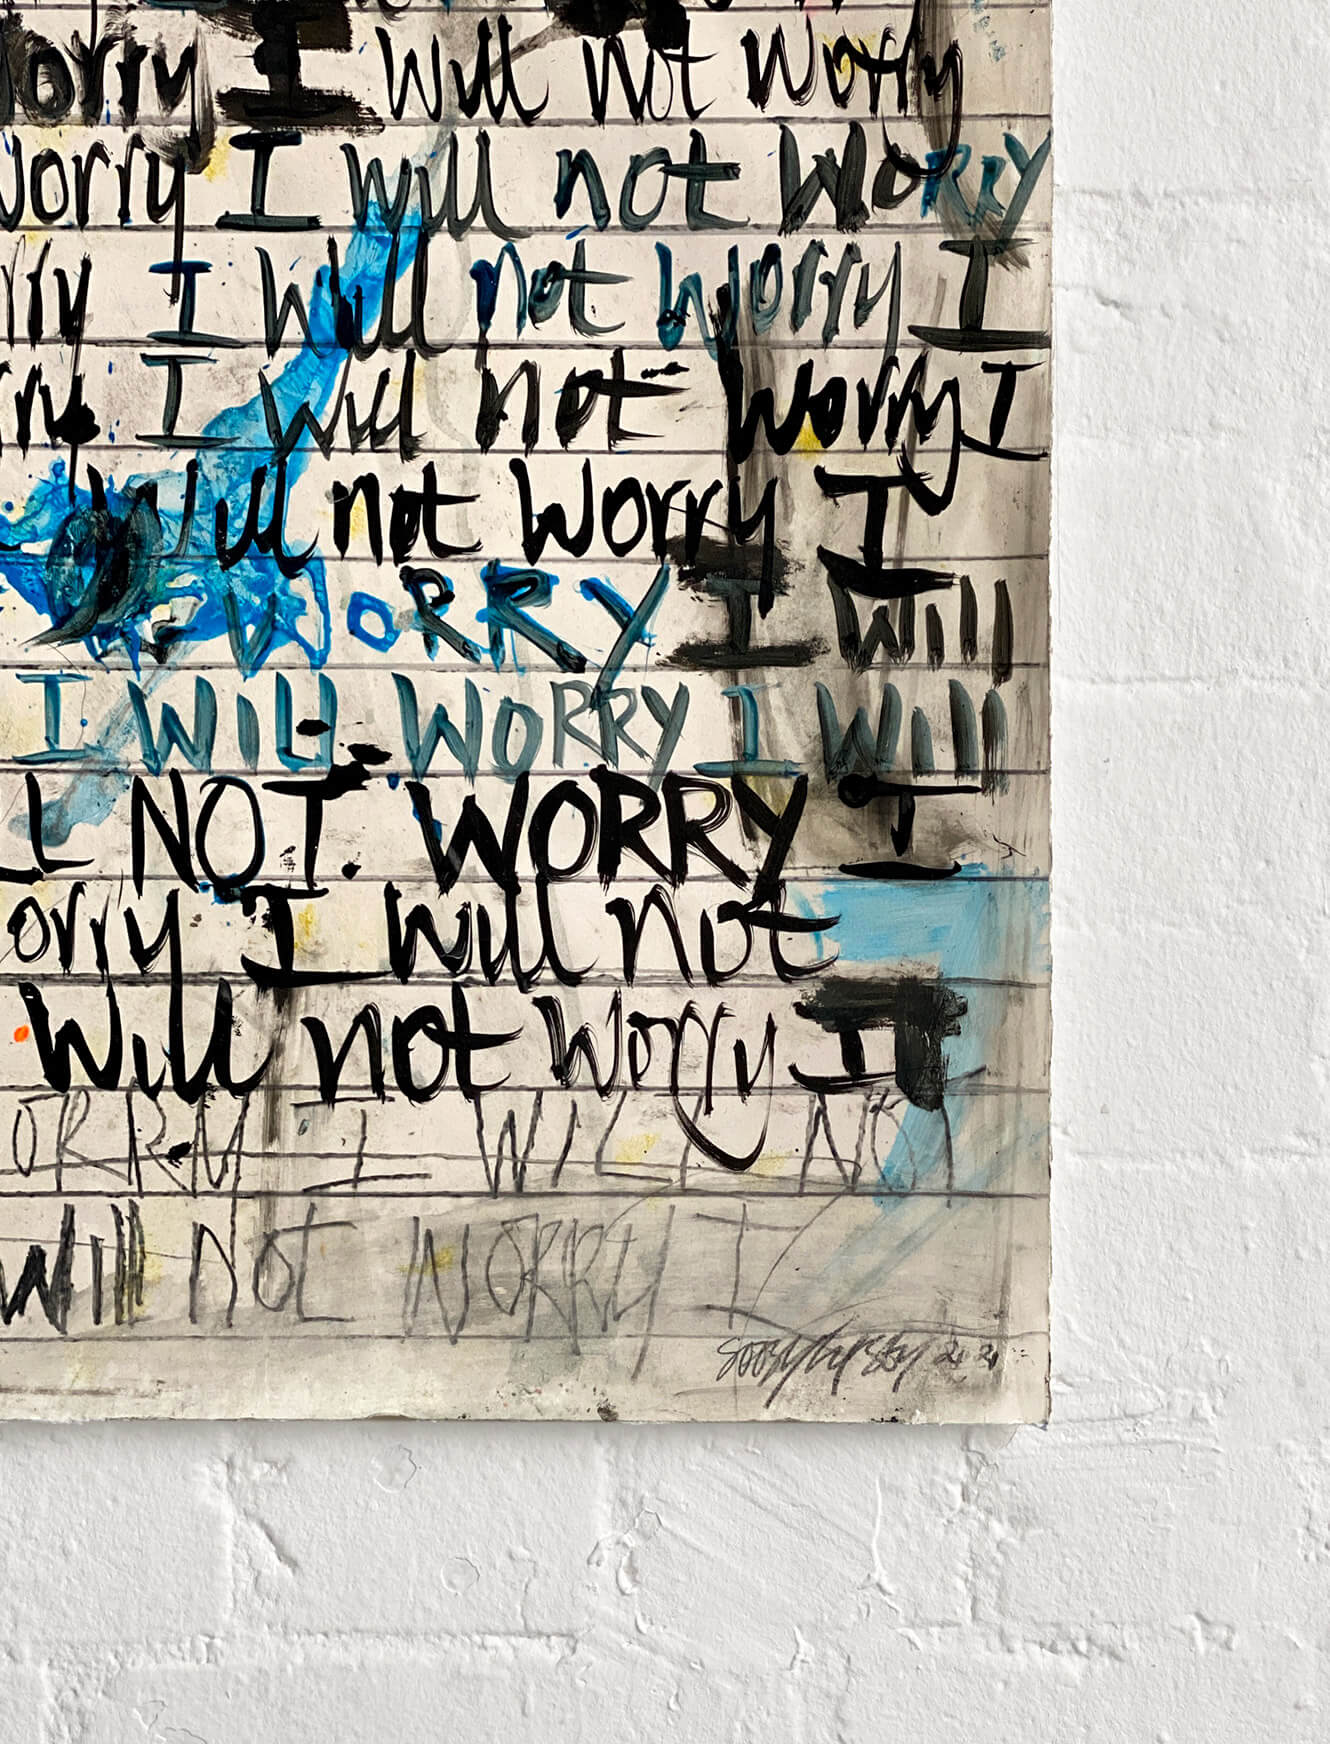 orry I will not worry
Worry I will not WoRRY
rry I will not worry I
rry I will not worry I
will not worry I
WORRY I will
I WILL WORRY I will
LL NOT. WORRY I
orry I will not
will not worry I
I WILL NOT
will NOT WORRY I
2021